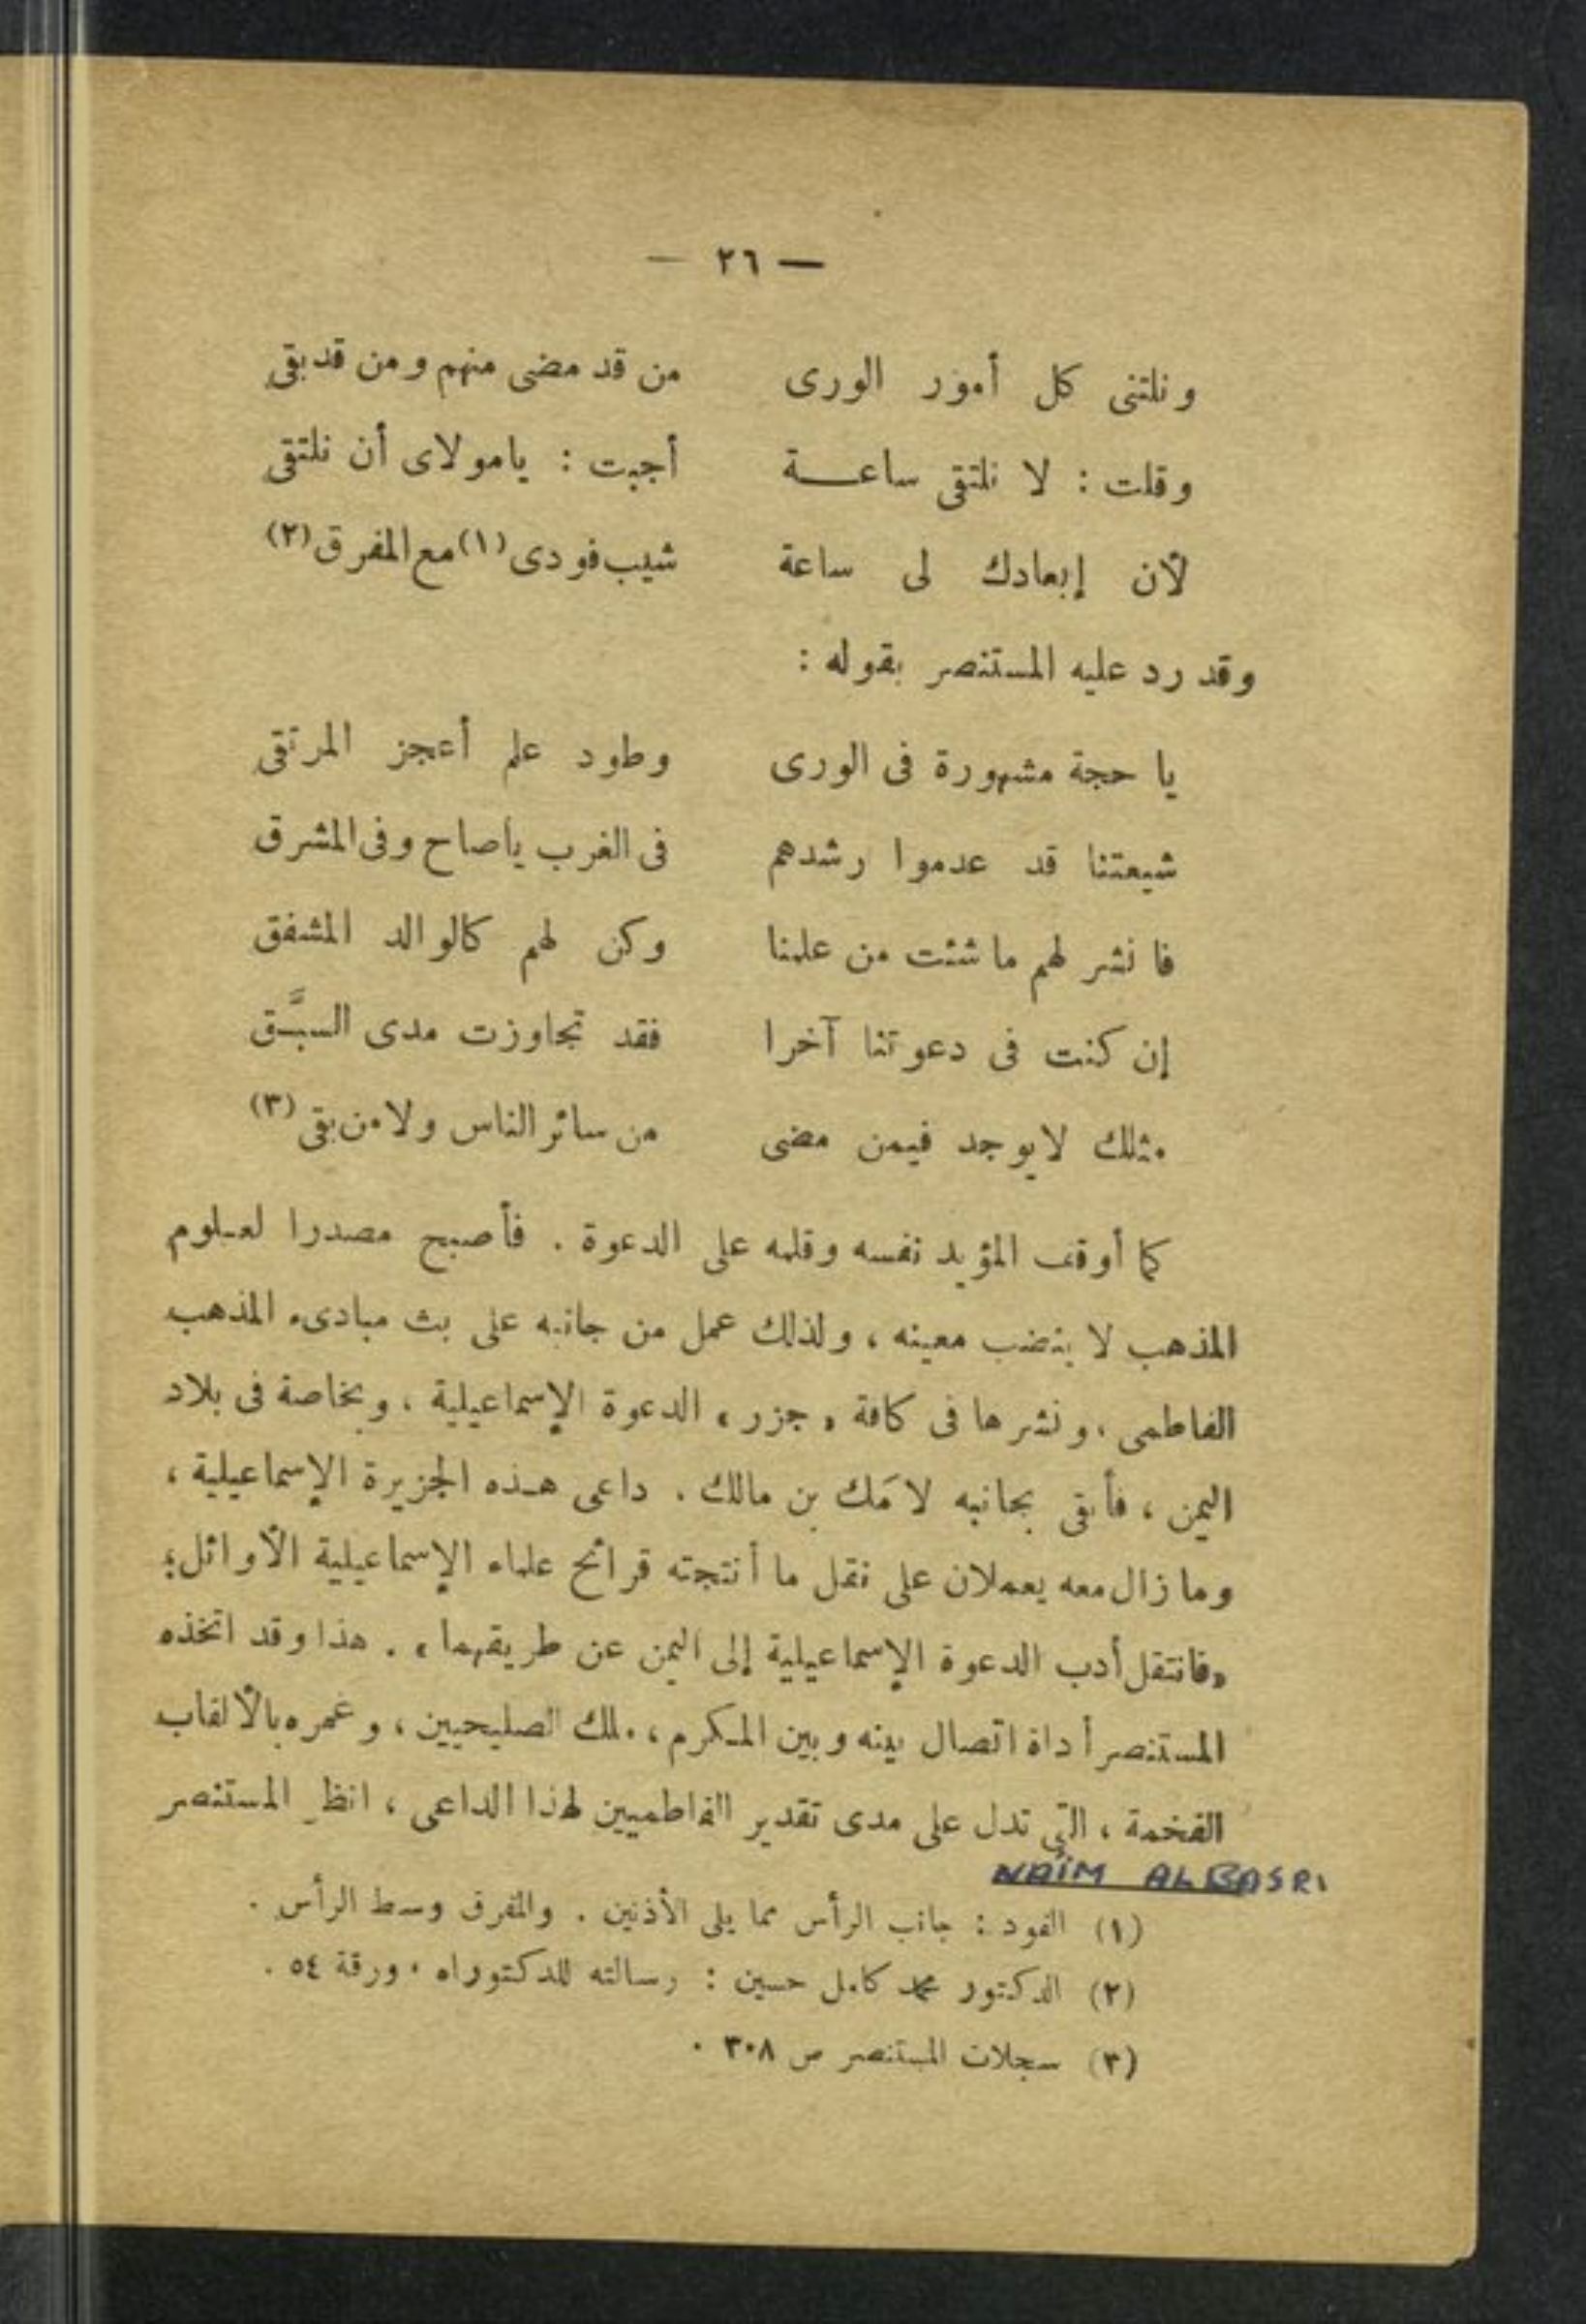 — ٢٦ —
ونلتنى كل أمور الورى من قد مضى منهم ومن قد بقى
وقلت : لا نلتقى ساعـــة أجبت : يامولاى أن نلتقى
لأن إبعادك لى ساعة شيب فودى (١) مع المفرق (٢)
وقد رد عليه المستنصر بقوله :
يا حجة مشهورة فى الورى وطود علم أعجز المرتقى
شيعتنا قد عدموا رشدهم فى الغرب ياصاح وفى المشرق
فانشر لهم ماشئت من علمنا وكن لهم كالوالد المشفق
إن كنت فى دعوتنا آخرا فقد تجاوزت مدى السبَّق
مثلك لايوجد فيمن مضى من سائر الناس ولامن بقى (٣)
كما أوقف المؤيد نفسه وقلمه على الدعوة . فأصبح مصدرا لعلوم
المذهب لا ينضب معينه ، ولذلك عمل من جانبه على بث مبادىء المذهب
الفاطمى ، ونشرها فى كافة « جزر » الدعوة الإسماعيلية ، وبخاصة فى بلاد
اليمن ، فأبقى بجانبه لامَك بن مالك . داعى هذه الجزيرة الإسماعيلية ،
ومازال معه يعملان على نقل ما أنتجته قرائح علماء الإسماعيلية الأوائل ؛
«فانتقل أدب الدعوة الإسماعيلية إلى اليمن عن طريقهما » . هذا وقد اتخذه
المستنصر أداة اتصال بينه وبين المكرم ، ملك الصليحيين ، وغمره بالألقاب
الفخمة ، التى تدل على مدى تقدير الفاطميين لهذا الداعى ، انظر المستنصر
NAIM ALBASRI
(١) الفود : جانب الرأس مما يلى الأذنين . والمفرق وسط الرأس .
(٢) الدكتور محمد كامل حسين : رسالته للدكتوراه ، ورقة ٥٤ .
(٣) سجلات المستنصر ص ٣٠٨ .